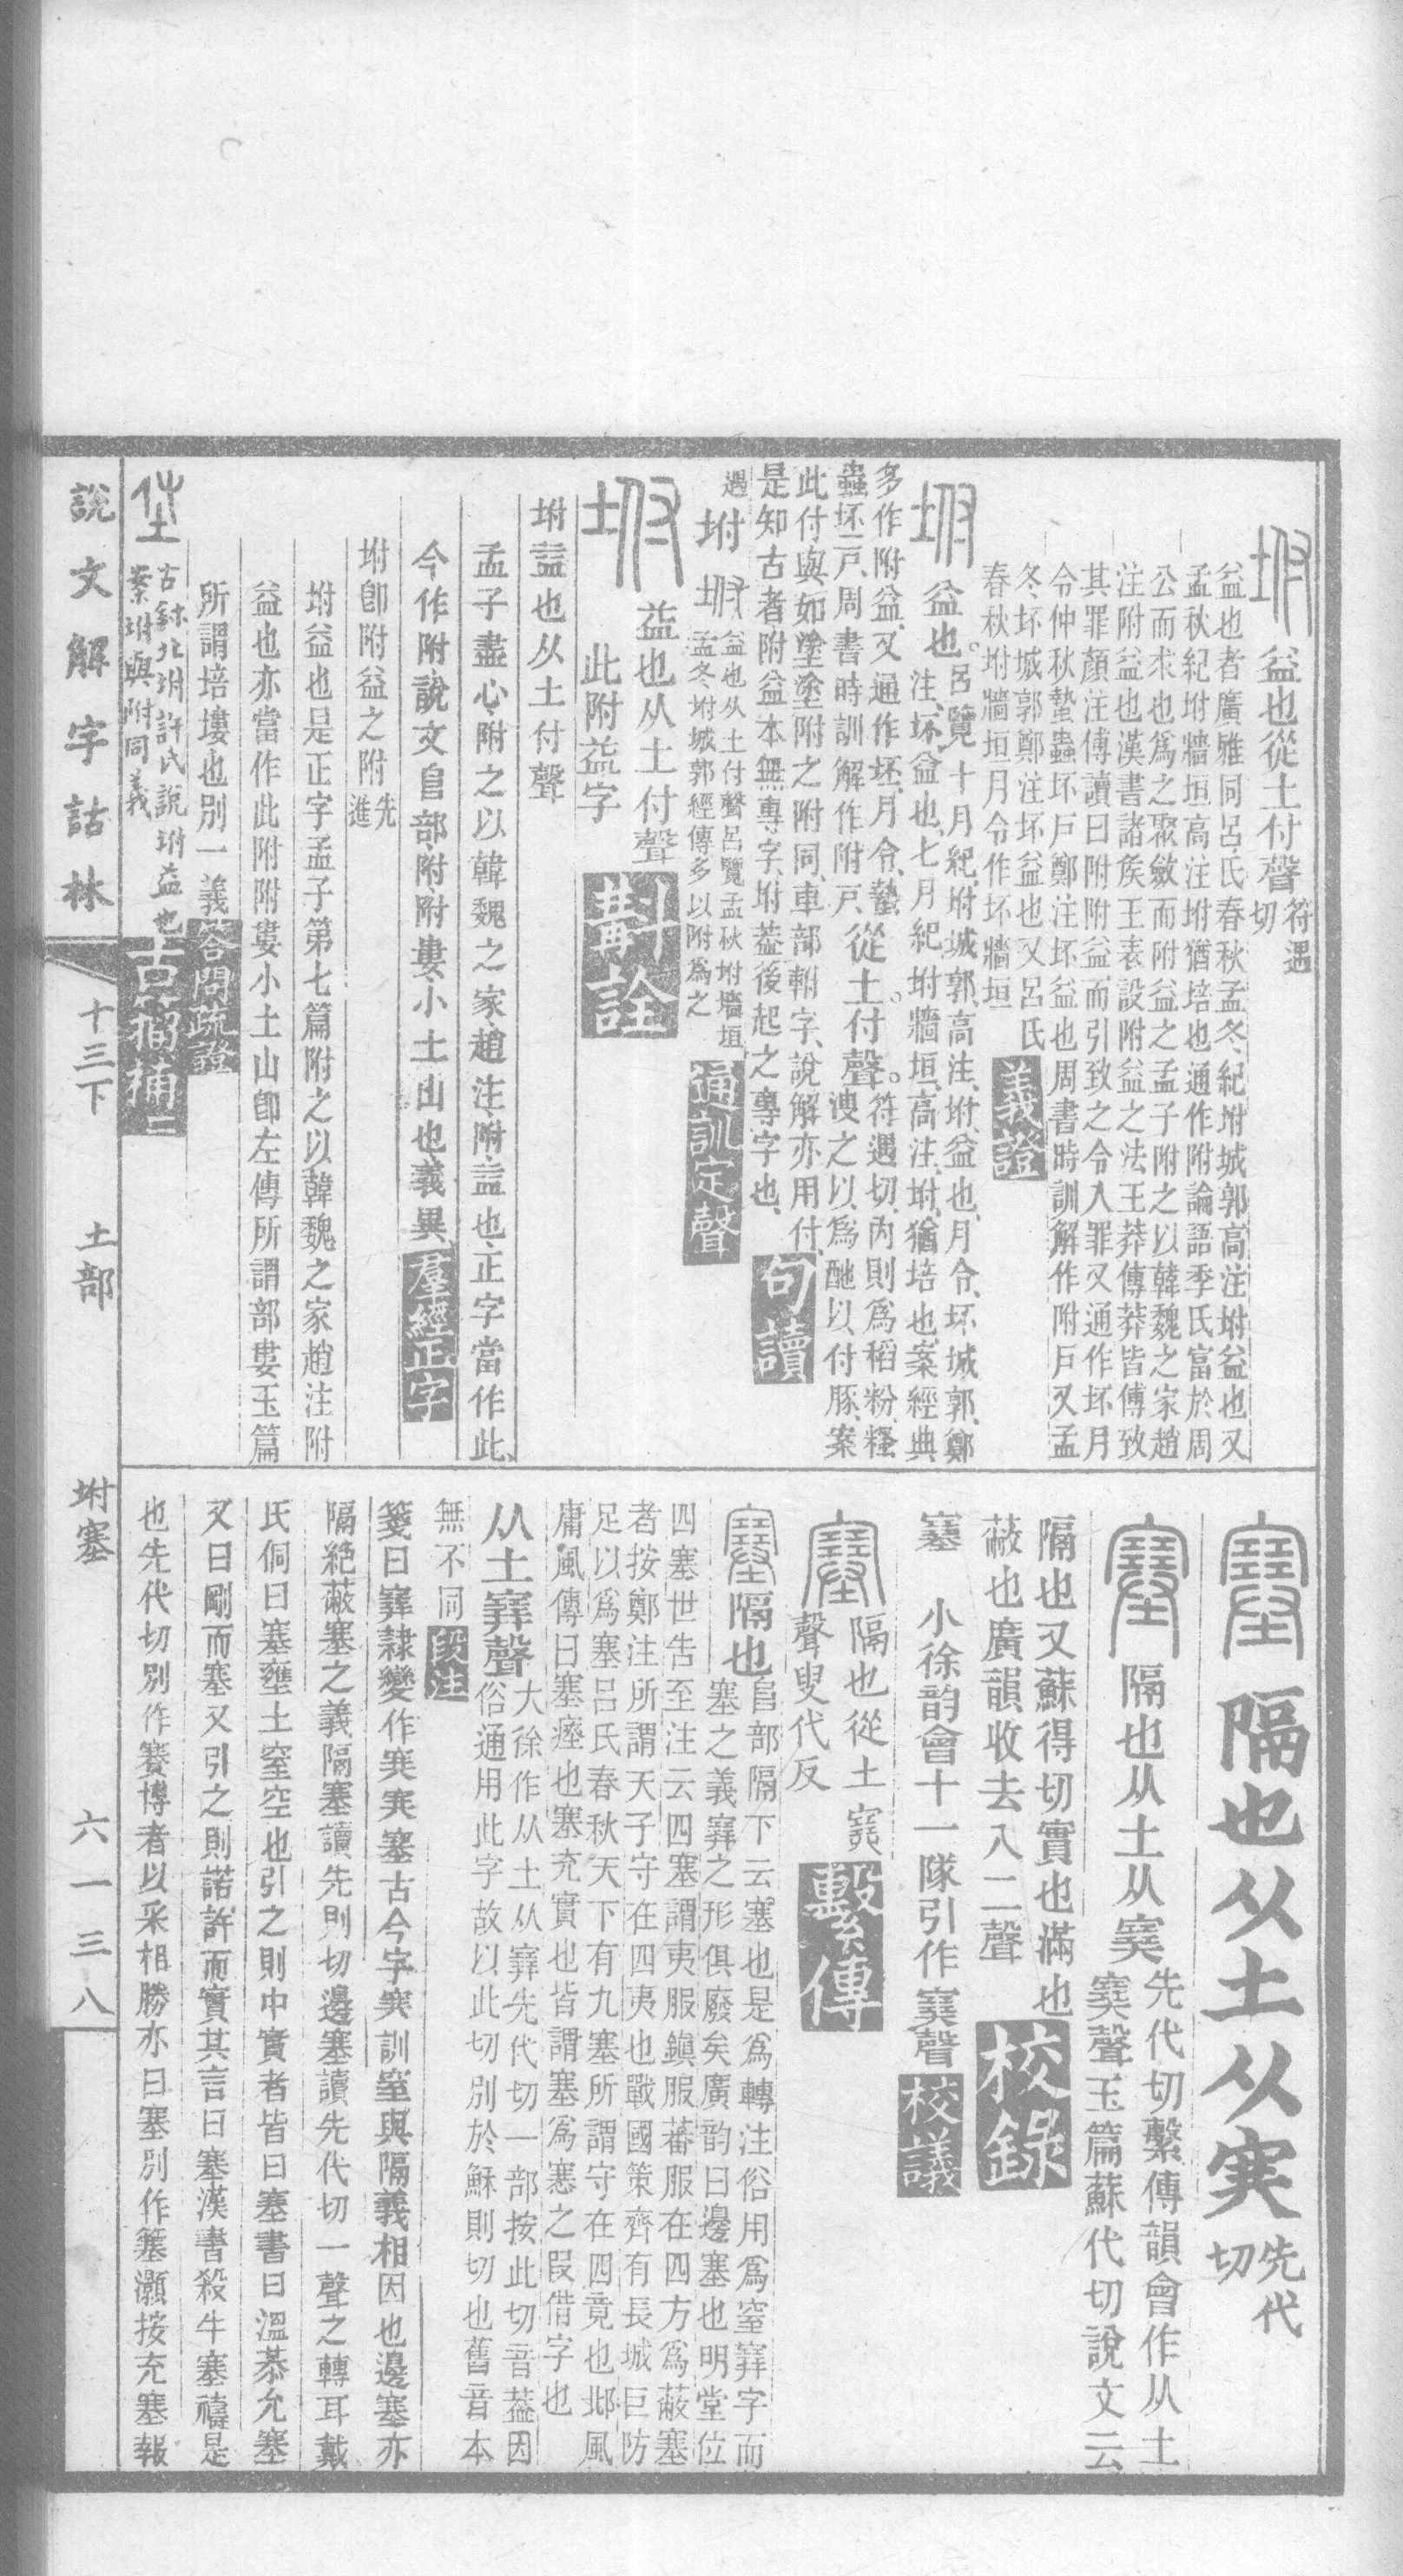 益也從土付聲符遇切
益也者廣雅同呂氏春秋孟冬紀坿城郭高注坿益也又
孟秋紀坿牆垣高注坿猶培也通作附論語季氏富於周
公而求也爲之聚斂而附益之孟子附之以韓魏之家趙
注附益也漢書諸矦王表設附益之法王莽傳莽皆傅致
其罪顏注傅讀曰附附益而引致之令入罪又通作坏月
令仲秋蟄蟲坏戶鄭注坏益也周書時訓解作附戶又孟
冬坏城郭鄭注坏益也又呂氏
春秋坿牆垣月令作坏牆垣 義證
坿 益也。呂覽、十月紀、坿城郭、高注、坿、益也、月令、坏城郭、鄭
注、坏、益也、七月紀、坿牆垣、高注、坿、猶培也、案經典
多作附益、又通作坏、月令、蟄
蟲坏戶、周書時訓解作附戶、從土付聲。符遇切、內則爲稻粉、糔
溲之以、爲酏以、付豚、案
此付與如塗塗附之附同、車部䡍字、說解亦用付、
是知古者附益本無專字、坿葢後起之專字也、 句讀
遇 坿 坿 益也从土付聲呂覽孟秋坿牆垣
孟冬坿城郭經傳多以附爲之 通訓定聲
坿 益也从土付聲
此附益字 斠詮
坿益也从土付聲
孟子盡心、附之以韓魏之家、趙注、附、益也、正字當作此、
今作附、說文𨸏部、附、附婁、小土山也、義異、 羣經正字
坿卽附益之附先進
坿益也是正字孟子第七篇附之以韓魏之家趙注附
益也亦當作此附附婁小土山卽左傳所謂部婁玉篇
所謂培塿也別一義 答問疏證
古鉥北坿許氏說坿益也
案坿與附同義 古籀補
塞 隔也从土从𡫳先代切
塞 隔也从土从𡫳先代切繫傳韻會作从土
𡫳聲玉篇蘇代切說文云
隔也又蘇得切實也滿也
蔽也廣韻收去入二聲 校錄
塞 小徐韵會十一隊引作𡫳聲 校議
塞 隔也從土𡫳
聲叟代反 繫傳
塞 隔也𨸏部隔下云塞也是爲轉注俗用爲窒𡫳字而
塞之義𡫳之形俱廢矣廣韵曰邊塞也明堂位
四塞世告至注云四塞謂夷服鎭服蕃服在四方爲蔽塞
者按鄭注所謂天子守在四夷也戰國策齊有長城巨防
足以爲塞呂氏春秋天下有九塞所謂守在四竟也邶風
庸風傳曰塞瘞也塞充實也皆謂塞爲㥶之叚借字也
从土𡫳聲大徐作从土从𡫳先代切一部按此切音葢因
俗通用此字故以此切別於穌則切也舊音本
無不同 段注
箋曰𡫳隸變作寒寒塞古今字寒訓窒與隔義相因也邊塞亦
隔絶蔽塞之義隔塞讀先則切邊塞讀先代切一聲之轉耳戴
氏侗曰塞壅土窒空也引之則中實者皆曰塞書曰溫恭允塞
又曰剛而塞又引之則諾許而實其言曰塞漢書殺牛塞禱是
也先代切別作賽博者以采相勝亦曰塞別作簺灝按充塞報
說文解字詁林 十三下 土部 坿塞 六一三八